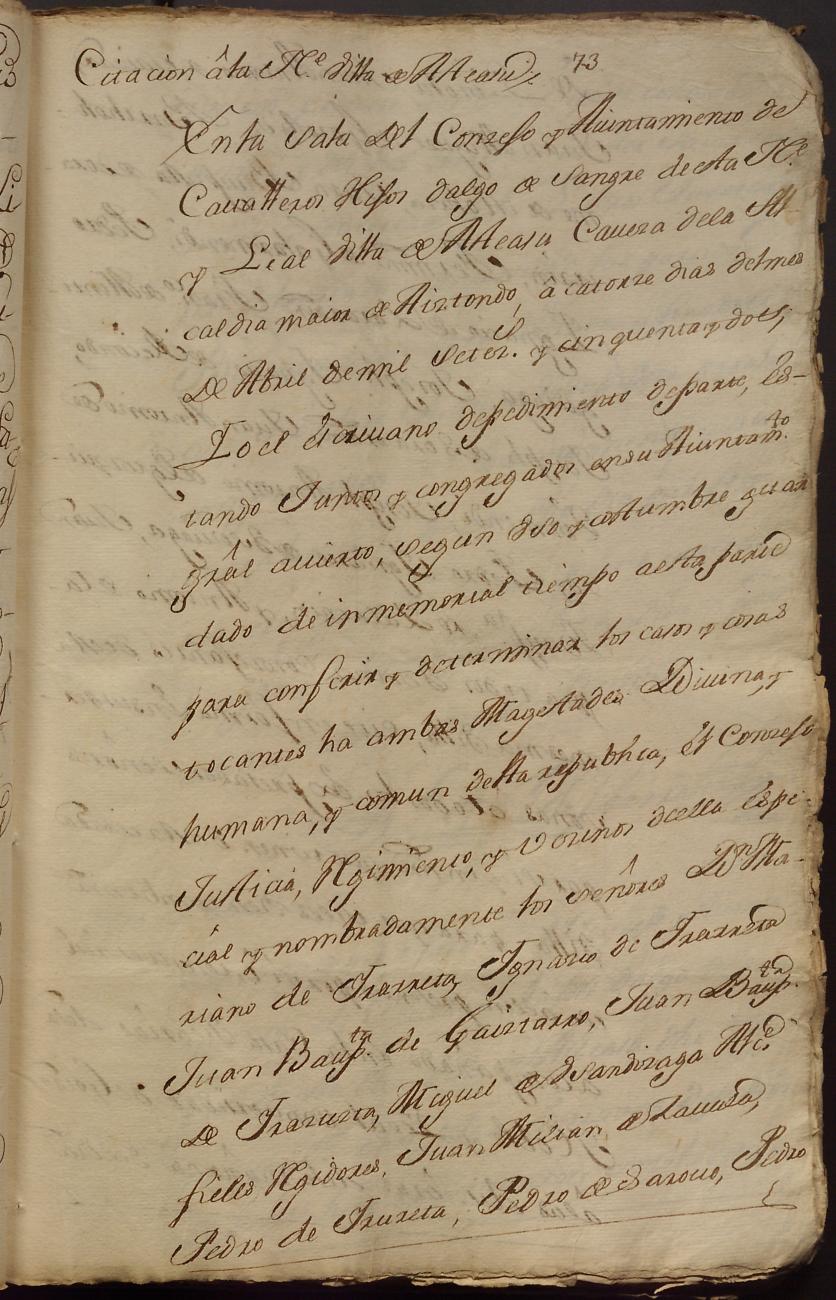 Citacion â la N.e Villa de Ateasu. 73
En la Sala del Conzejo y Aiuntamiento de
Cavalleros Hijos dalgo de Sangre de esta N.e
y Leal Villa de Ateasu Caveza de la Al
caldia maior de Aiztondo, a catorze dias del mes
de Abril de mil Setez.s y cinquenta y dos,
Yo el Escrivano de pedimiento de parte, Es-
tando Juntos y congregados en su Aiuntam.to
grâl avierto, segun vso y costumbre guar
dado de inmemorial tiempo a esta parte
para conferir y determinar los casos y cosas
tocantes ha ambas Magestades Divina, y
humana, y comun de la republica, el Conzejo
Justicia, Rgimiento, y vezinos de ella Espe-
cial y nombradamente los Señores Dn Ma-
riano de Irarreta, Ignacio de Irarreta
Juan Baup.ta de Gaiztarro, Juan Baup.ta
de Irazuzta, Miguel de Vsandizaga Alc.e
fieles Rgidores, Juan Milian de Lavusa,
Pedro de Irureta, Pedro de Sarove, Pedro